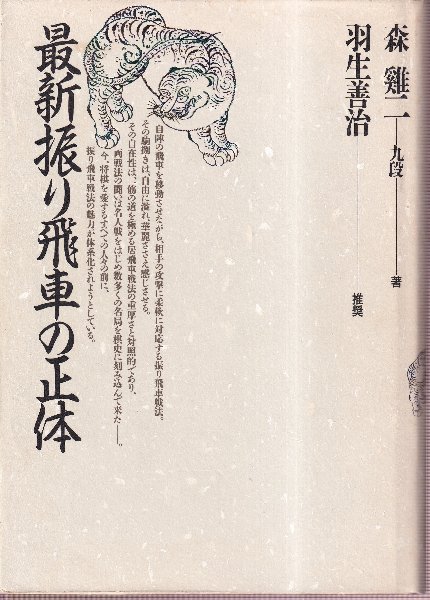 森 雞二──九段──著
羽生善治──推奨
自陣の飛車を移動させながら、相手の攻撃に柔軟に対応する振り飛車戦法。
その駒捌きは、自由に溢れ、華麗ささえ感じさせる。
その自在性は、筋の道を極める居飛車戦法の重厚さと対照的であり、
両戦法の闘いは名人戦をはじめ数多くの名局を棋史に刻み込んで来た──。
今、将棋を愛するすべての人々の前に、
振り飛車戦法の魅力が体系化されようとしている。
最新振り飛車の正体